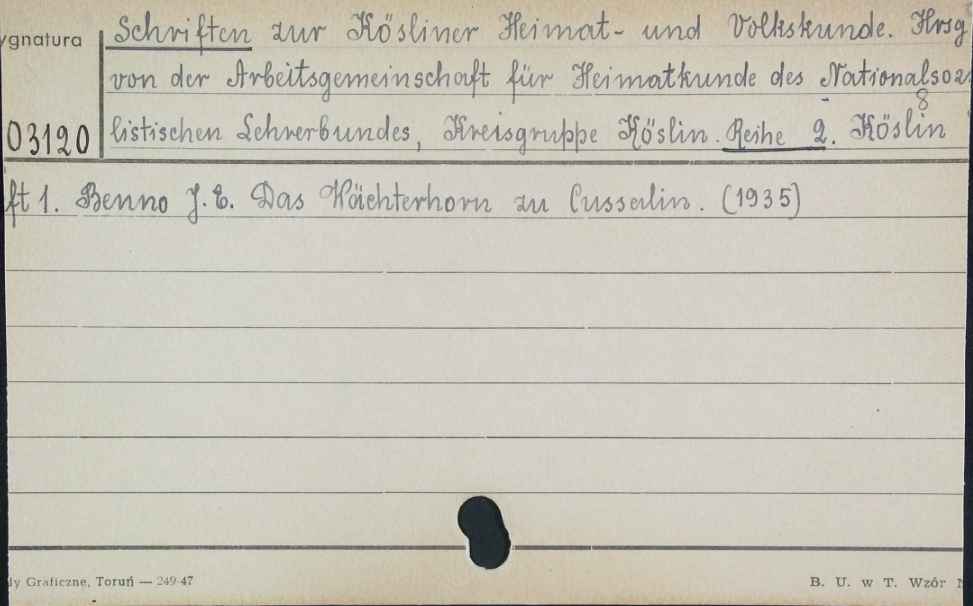 ygnatura
Schriften zur Kösliner Heimat- und Volkskunde. Hrsg
von der Arbeitsgemeinschaft für Heimatkunde des Nationalsoz
8
03120
listischen Lehrerbundes, Kreisgruppe Köslin. Reihe 2. Köslin
ft 1. Benno J. E. Das Wächterhorn zu Cusserlin. (1935)
dy Graficzne, Toruń — 249-47
B. U. w T. Wzór